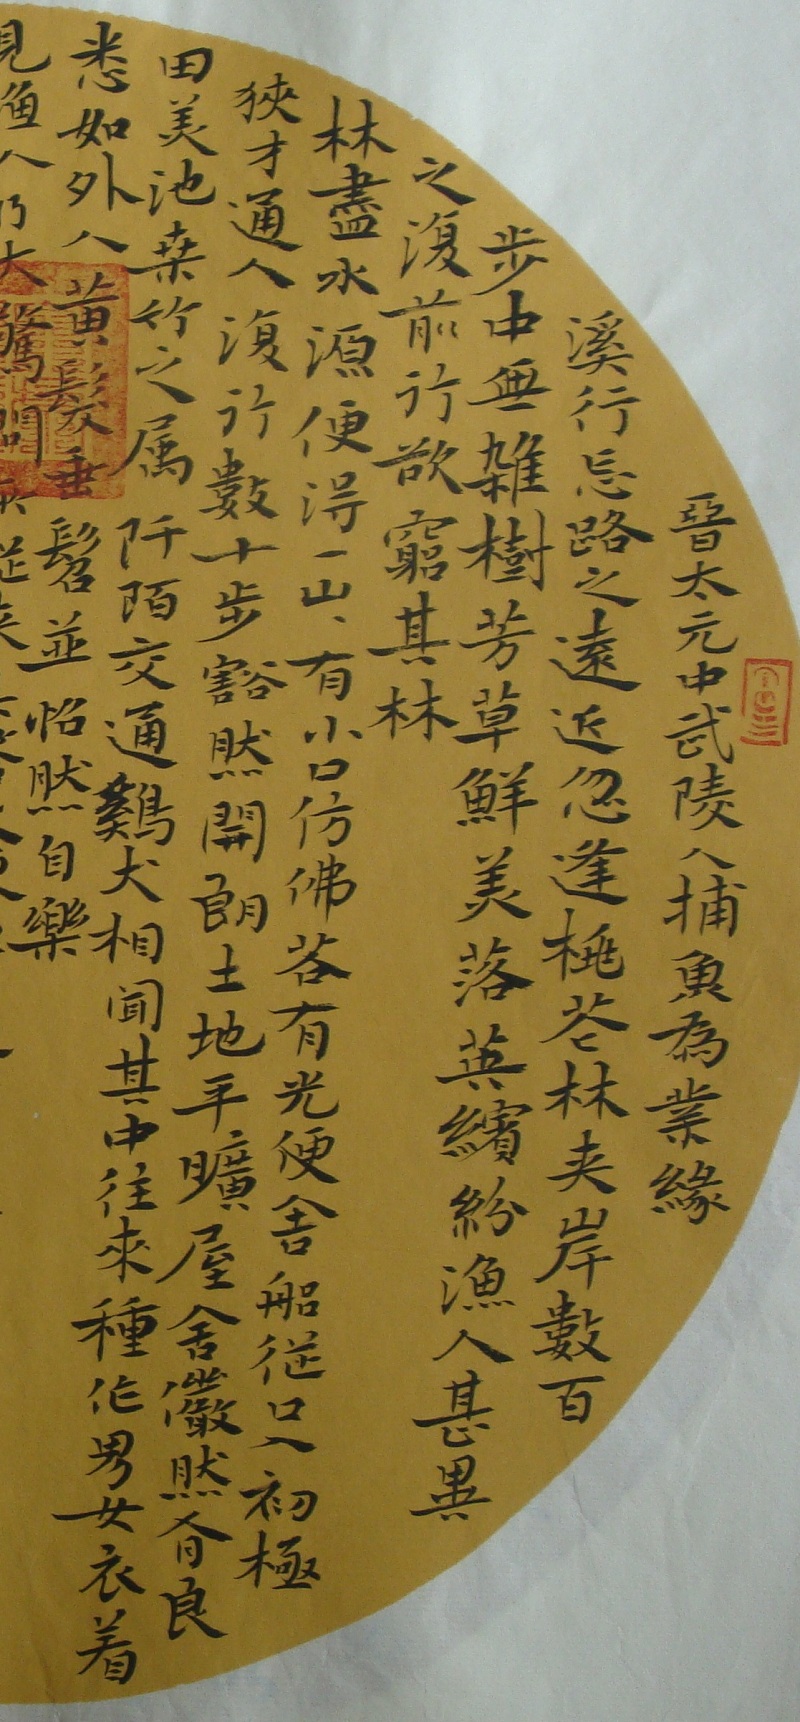 晉太元中武陵人捕魚為業緣
溪行忘路之遠近忽逢桃花林夾岸數百
步中無雜樹芳草鮮美落英繽紛漁人甚異
之復前行欲窮其林
林盡水源便得一山、有小口仿佛若有光便舍船從口入初極
狹才通人復行數十步豁然開朗土地平曠屋舍儼然有良
田美池桑竹之属阡陌交通雞犬相聞其中往來種作男女衣着
悉如外人黃髮垂髫並怡然自樂
見漁人乃大驚問